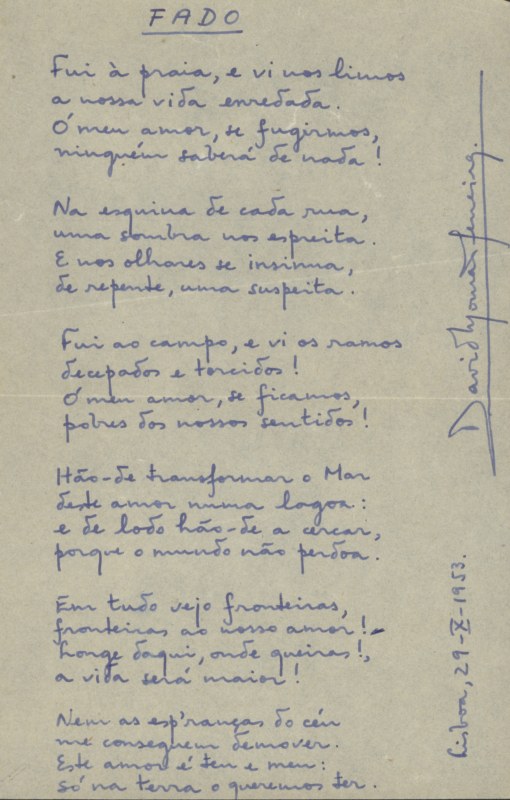 FADO
Fui à praia, e vi nos limos
a nossa vida enredada.
Ó meu amor, se fugirmos,
ninguém saberá de nada!
Na esquina de cada rua,
uma sombra nos espreita.
E nos olhares se insinua,
de repente, uma suspeita.
Fui ao campo, e vi os ramos
decepados e torcidos!
Ó meu amor, se ficamos,
pobres dos nossos sentidos!
Hão-de transformar o Mar
deste amor numa lagoa:
e de lodo hão-de a cercar,
porque o mundo não perdoa.
Em tudo vejo fronteiras,
fronteiras ao nosso amor!
Longe daqui, onde queiras!,
a vida será maior!
Nem as esp'ranças do céu
me conseguem demover.
Este amor é teu e meu:
só na terra o queremos ter.
David Mourão-Ferreira.
Lisboa, 29-X-1953.